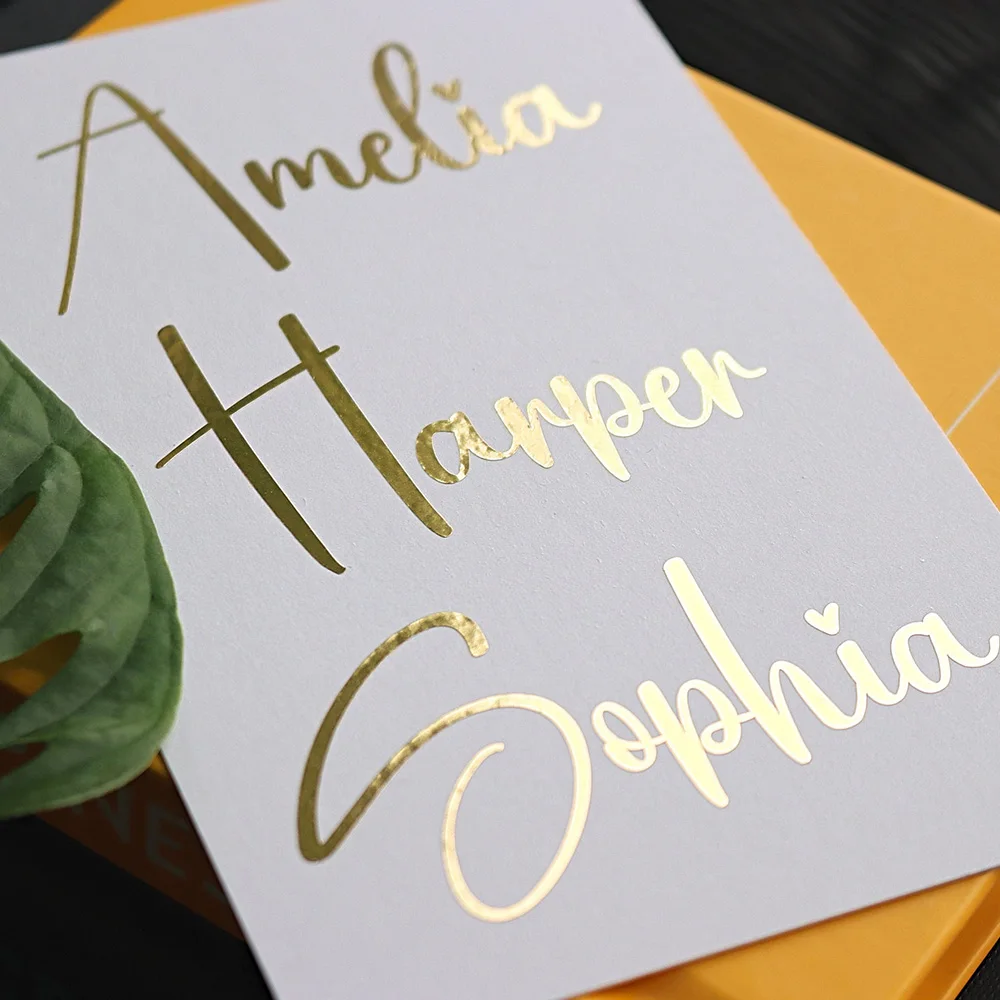 Amelia
Harper
Sophia